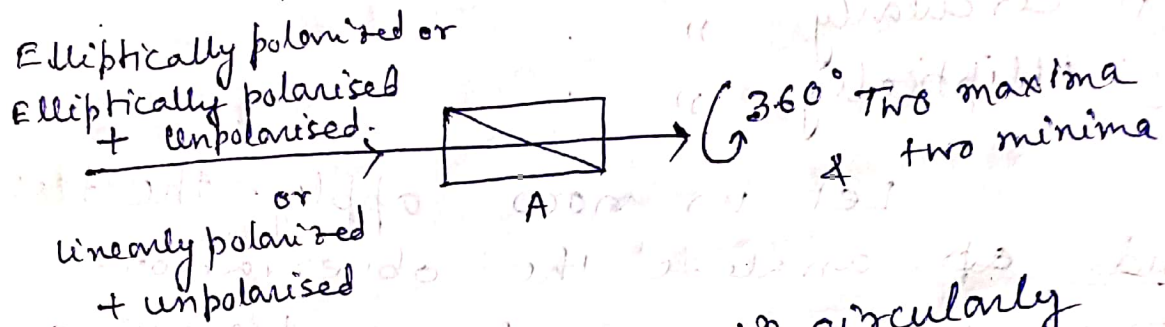 Elliptically polarized or
Elliptically polarised
+ unpolarised.
or
linearly polarized
+ unpolarised
A
360° Two maxima
& two minima
circularly